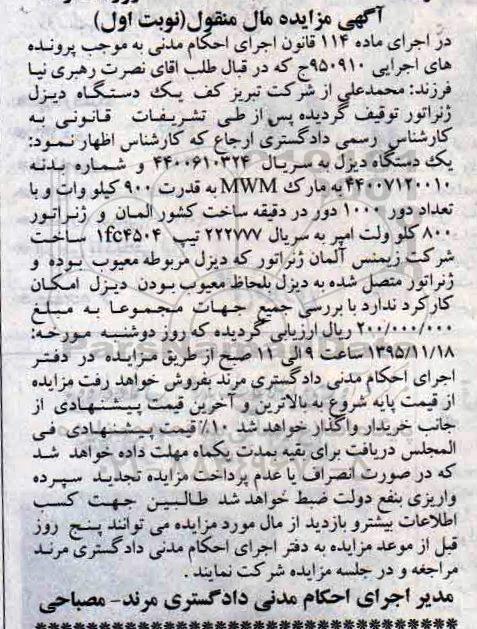 آگهی مزایده مال منقول(نوبت اول)
در اجرای ماده ۱۱۴ قانون اجرای احکام مدنی به موجب پرونده
های اجرایی ۹۵۰۹۱۰ج که در قبال طلب اقای نصرت رهبری نیا
فرزند: محمدعلی از شرکت تبریز کف یک دستگاه دیزل
ژنراتور توقیف گردیده پس از طی تشریفات قانونی به
کارشناس رسمی دادگستری ارجاع که کارشناس اظهار نمود:
یک دستگاه دیزل به سریال ۴۴۰۰۶۱۰۳۲۴ و شماره بدنه
۴۴۰۰۷۱۲۰۰۱۰ به مارک MWM به قدرت ۹۰۰ کیلو وات و با
تعداد دور ۱۰۰۰ دور در دقیقه ساخت کشور المان و ژنراتور
۸۰۰ کلو ولت امپر به سریال ۲۲۲۷۷۷ تیپ 1fc۴۵۰۴ ساخت
شرکت زیمنس آلمان ژنراتور که دیزل مربوطه معیوب بوده و
ژنراتور متصل شده به دیزل بلحاظ معیوب بودن دیزل امکان
کارکرد ندارد با بررسی جمیع جهات مجموعا به مبلغ
۲۰۰/۰۰۰/۰۰۰ ریال ارزیابی گردیده که روز دوشنبه مورخه:
۱۳۹۵/۱۱/۱۸ ساعت ۹ الی ۱۱ صبح از طریق مزایده در دفتر
اجرای احکام مدنی دادگستری مرند بفروش خواهد رفت مزایده
از قیمت پایه شروع به بالاترین و آخرین قیمت پیشنهادی از
جانب خریدار واگذار خواهد شد ۱۰٪ قیمت پیشنهادی فی
المجلس دریافت برای بقیه بمدت یکماه مهلت داده خواهد شد
که در صورت انصراف یا عدم پرداخت مزایده تجدید سپرده
واریزی بنفع دولت ضبط خواهد شد طالبین جهت کسب
اطلاعات بیشترو بازدید از مال مورد مزایده می توانند پنج روز
قبل از موعد مزایده به دفتر اجرای احکام مدنی دادگستری مرند
مراجعه و در جلسه مزایده شرکت نمایند .
مدیر اجرای احکام مدنی دادگستری مرند- مصباحی